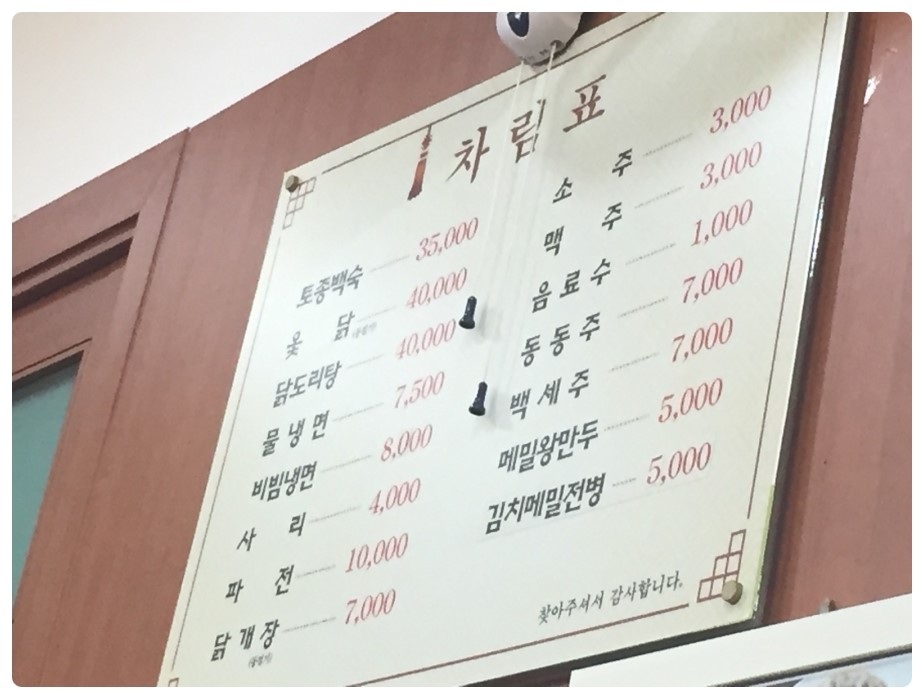 차림표
토종백숙 35,000
옻닭 40,000
닭도리탕 40,000
물냉면 7,500
비빔냉면 8,000
사리 4,000
파전 10,000
닭개장 7,000
소주 3,000
맥주 3,000
음료수 1,000
동동주 7,000
백세주 7,000
메밀왕만두 5,000
김치메밀전병 5,000
찾아주셔서 감사합니다.